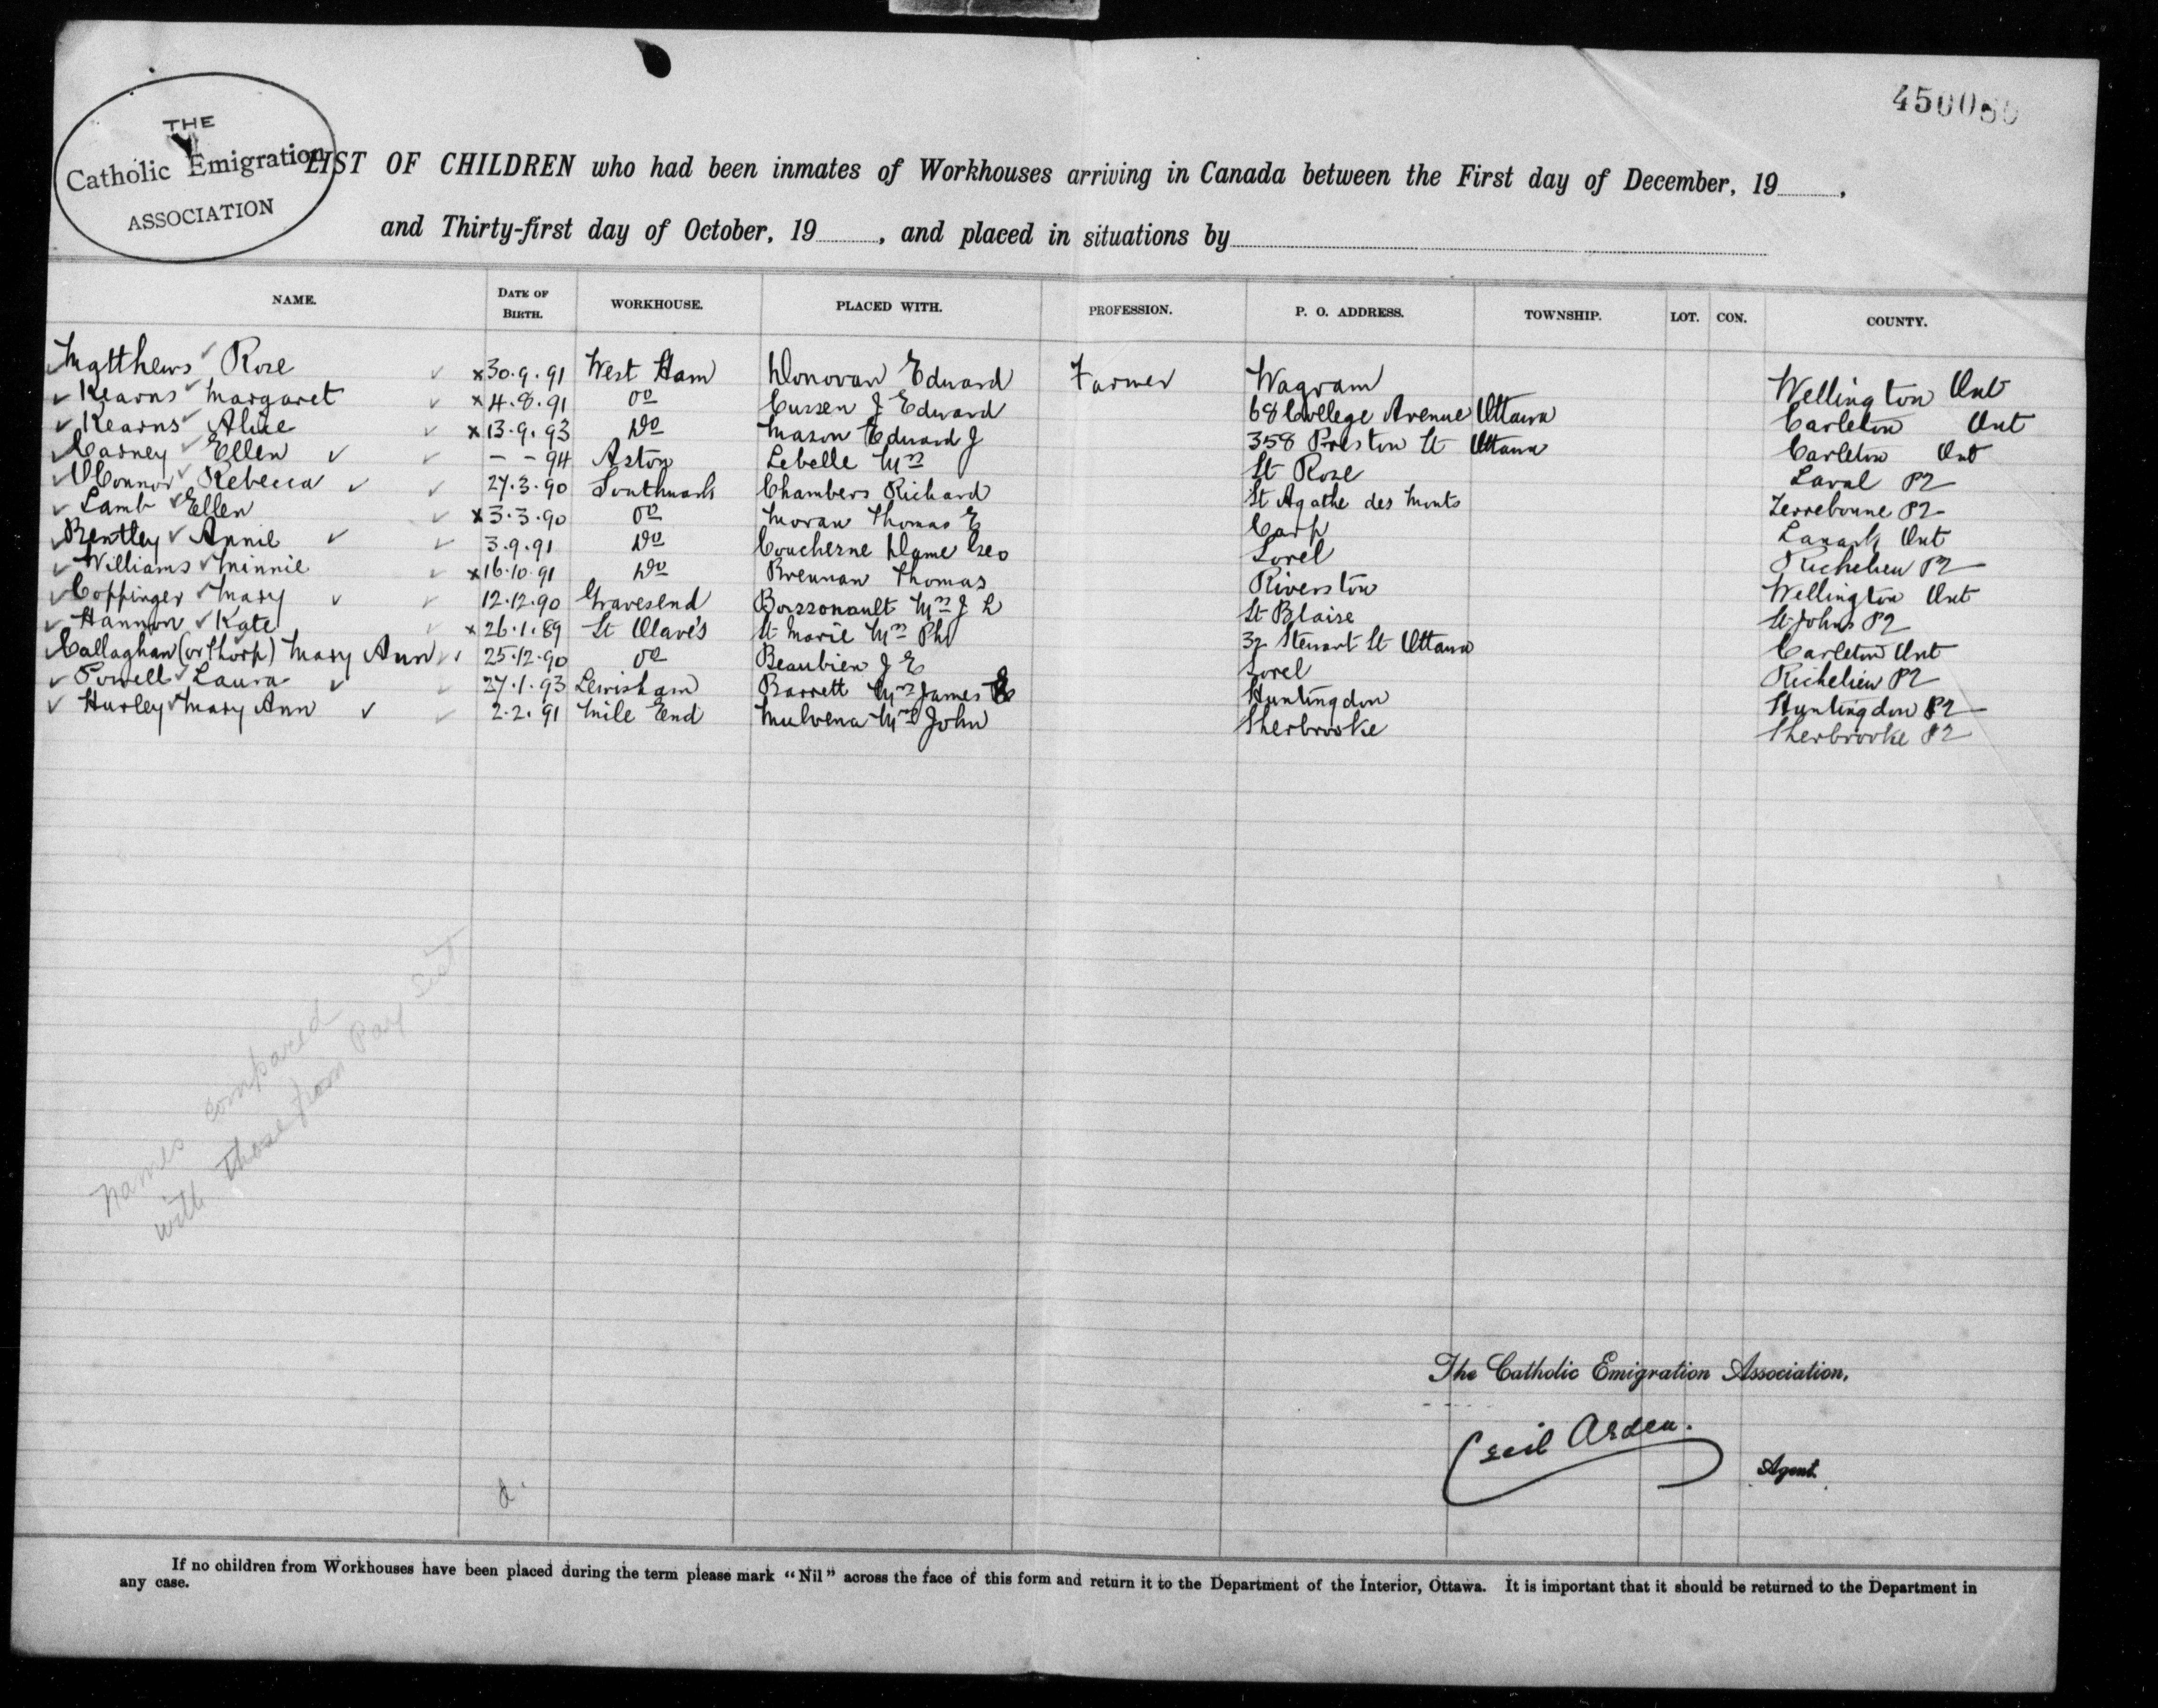 450080
THE
Catholic Emigration
ASSOCIATION
LIST OF CHILDREN who had been inmates of Workhouses arriving in Canada between the First day of December, 19......,
and Thirty-first day of October, 19......, and placed in situations by
NAME. DATE OF BIRTH. WORKHOUSE. PLACED WITH. PROFESSION. P. O. ADDRESS. TOWNSHIP. LOT. CON. COUNTY.
✓ Matthews ✓ Rose ✓ x 30.9.91 West Ham Donovan Edward Farmer Wagram Wellington Ont
✓ Kearns ✓ Margaret ✓ x 4.8.91 Do Cussen J Edward 68 College Avenue Ottawa Carleton Ont
✓ Kearns ✓ Alice ✓ x 13.9.93 Do Mason Edward J 358 Preston St Ottawa Carleton Ont
✓ Carney ✓ Ellen ✓ ✓ – – 94 Aston Lebelle Mrs St Rose Laval PQ
✓ OConnor ✓ Rebecca ✓ ✓ 27.3.90 Southwark Chambers Richard St Agathe des Monts Terrebonne PQ
✓ Lamb ✓ Ellen ✓ x 3.3.90 Do Moran Thomas E Carp Lanark Ont
✓ Bentley ✓ Annie ✓ ✓ 3.9.91 Do Coucherne Dame Geo Sorel Richelieu PQ
✓ Williams ✓ Minnie ✓ x 16.10.91 Do Brennan Thomas Riverston Wellington Ont
✓ Coppinger ✓ Mary ✓ ✓ 12.12.90 Gravesend Boissonault Mrs J L St Blaise St Johns PQ
✓ Hannon ✓ Kate ✓ x 26.1.89 St Olave's St Marie Mrs Phi 32 Stewart St Ottawa Carleton Ont
✓ Callaghan (or Thorp) Mary Ann ✓ ✓ 25.12.90 Do Beaubien J E Sorel Richelieu PQ
✓ Powell ✓ Laura ✓ ✓ 27.1.93 Lewisham Barrett Mrs James Huntingdon Huntingdon PQ
✓ Hurley ✓ Mary Ann ✓ ✓ 2.2.91 Mile End Mulvena Mrs John Sherbrooke Sherbrooke PQ
Names compared
with those from Pay List
The Catholic Emigration Association.
Cecil Arden.
Agent.
If no children from Workhouses have been placed during the term please mark "Nil" across the face of this form and return it to the Department of the Interior, Ottawa. It is important that it should be returned to the Department in
any case.